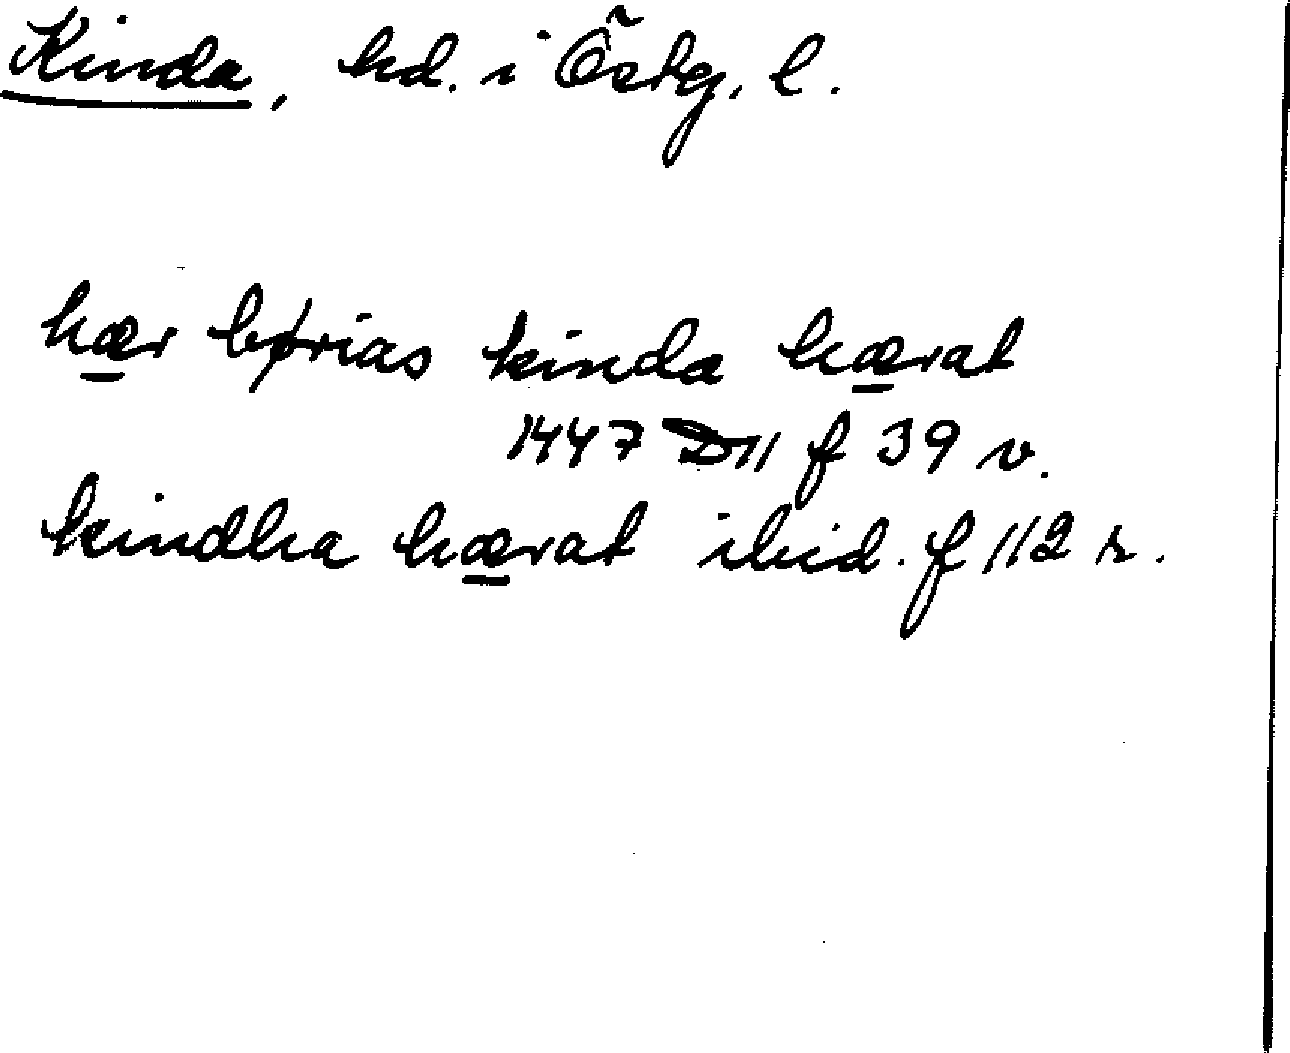 Kinda, hd. i Östg. l.
hær børias kinda hærat
1447 D11 f 39 v.
kindha hærat ibid. f 112 r.